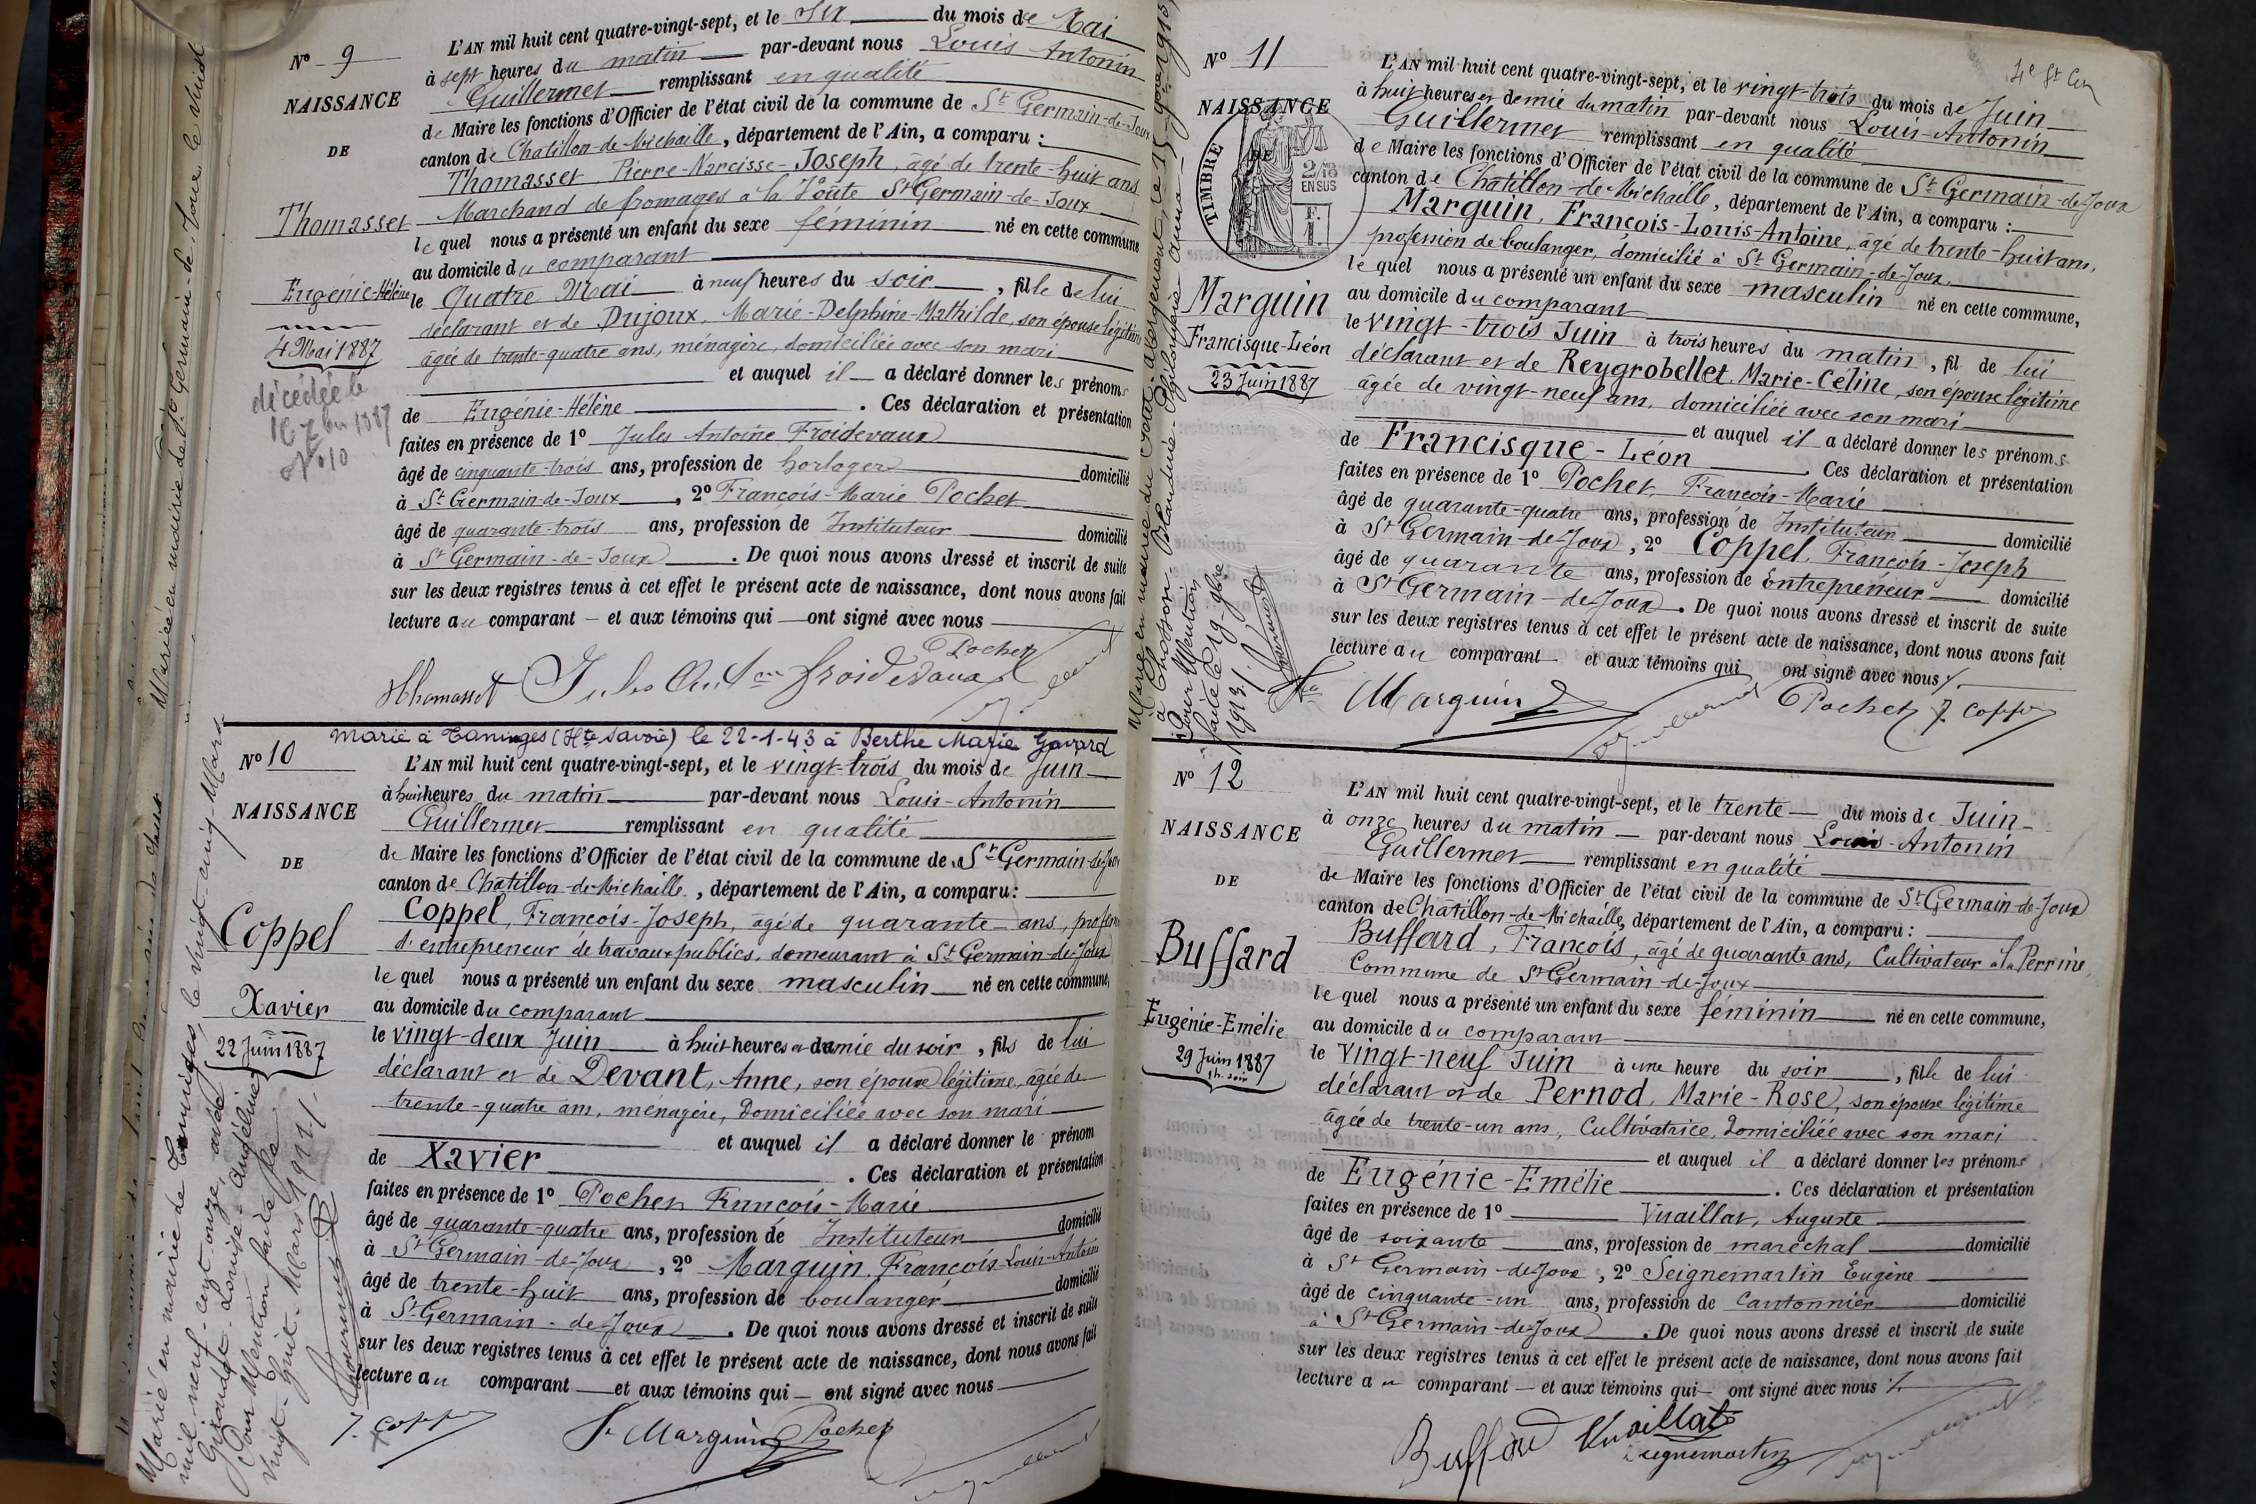 N° 9
NAISSANCE
DE
Thomasset
Eugénie-Hélène
4 Mai 1887
décédée le
N° 10
L'AN mil huit cent quatre-vingt-sept, et le six du mois de Mai
à sept heures du matin par-devant nous Louis Antonin
Guillermet remplissant en qualité
de Maire les fonctions d'Officier de l'état civil de la commune de St Germain-de-Joux
canton de Chatillon-de-Michaille, département de l'Ain, a comparu :
Thomasset Pierre-Narcisse-Joseph, âgé de trente-huit ans
Marchand de fromages à la Voûte St Germain-de-Joux
lequel nous a présenté un enfant du sexe féminin né en cette commune
au domicile du comparant
le Quatre Mai à neuf heures du soir, fille de lui
déclarant et de Dujoux, Marie-Delphine-Mathilde, son épouse légitime
âgée de trente-quatre ans, ménagère, domiciliée avec son mari
et auquel il a déclaré donner les prénoms
de Eugénie-Hélène. Ces déclaration et présentation
faites en présence de 1° Jules Antoine Froidevaux
âgé de cinquante-trois ans, profession de horloger domicilié
à St Germain-de-Joux, 2° François-Marie Pochet
âgé de quarante-trois ans, profession de Instituteur domicilié
à St Germain-de-Joux. De quoi nous avons dressé et inscrit de suite
sur les deux registres tenus à cet effet le présent acte de naissance, dont nous avons fait
lecture au comparant et aux témoins qui ont signé avec nous
Pochet
Thomasset Jules Antoine froidevaux
Marié à Taninges (Hte Savoie) le 22-1-43 à Berthe Marie Gavard
N° 10
NAISSANCE
DE
Coppel
Xavier
22 Juin 1887
Marié en mairie de Taninges, le vingt-cinq-Mars
mil-neuf-cent-onze, avec
Louise-Angéline
Pour Mention faite le
vingt-huit-Mars 1911
L'AN mil huit cent quatre-vingt-sept, et le vingt-trois du mois de Juin
à huit heures du matin par-devant nous Louis-Antonin
Guillermet remplissant en qualité
de Maire les fonctions d'Officier de l'état civil de la commune de St Germain-de-Joux
canton de Chatillon-de-Michaille, département de l'Ain, a comparu :
Coppel, François-Joseph, âgé de quarante ans, profession
d'entrepreneur de travaux publics, demeurant à St Germain-de-Joux
lequel nous a présenté un enfant du sexe masculin né en cette commune,
au domicile du comparant
le vingt-deux Juin à huit heures et demie du soir, fils de lui
déclarant et de Devant, Anne, son épouse légitime, âgée de
trente-quatre ans, ménagère, Domiciliée avec son mari
et auquel il a déclaré donner le prénom
de Xavier. Ces déclaration et présentation
faites en présence de 1° Pochet François-Marie
âgé de quarante-quatre ans, profession de Instituteur domicilié
à St Germain-de-Joux, 2° Marguin, François-Louis-Antoine
âgé de trente-huit ans, profession de boulanger domicilié
à St Germain-de-Joux. De quoi nous avons dressé et inscrit de suite
sur les deux registres tenus à cet effet le présent acte de naissance, dont nous avons fait
lecture au comparant et aux témoins qui ont signé avec nous
J. Coppel Marguin Pochet
N° 11
NAISSANCE
TIMBRE
2/10
EN SUS
Marguin
Francisque-Léon
23 Juin 1887
Pour Mention
faite le 19-9bre
1913
L'AN mil huit cent quatre-vingt-sept, et le vingt-trois du mois de Juin
à huit heures et demie du matin par-devant nous Louis-Antonin
Guillermet remplissant en qualité
de Maire les fonctions d'Officier de l'état civil de la commune de St Germain-de-Joux
canton de Chatillon-de-Michaille, département de l'Ain, a comparu :
Marguin, François-Louis-Antoine, âgé de trente-huit ans,
profession de boulanger, domicilié à St Germain-de-Joux
lequel nous a présenté un enfant du sexe masculin né en cette commune,
au domicile du comparant
le vingt-trois Juin à trois heures du matin, fil de lui
déclarant et de Reygrobellet, Marie-Céline, son épouse légitime
âgée de vingt-neuf ans, domiciliée avec son mari
et auquel il a déclaré donner les prénoms
de Francisque-Léon. Ces déclaration et présentation
faites en présence de 1° Pochet, François-Marie
âgé de quarante-quatre ans, profession de Instituteur domicilié
à St Germain-de-Joux, 2° Coppel, François-Joseph
âgé de quarante ans, profession de Entrepreneur domicilié
à St Germain-de-Joux. De quoi nous avons dressé et inscrit de suite
sur les deux registres tenus à cet effet le présent acte de naissance, dont nous avons fait
lecture au comparant et aux témoins qui ont signé avec nous
Marguin Pochet J. Coppel
N° 12
NAISSANCE
DE
Buffard
Eugénie-Emélie
29 Juin 1887
1 h. soir
L'AN mil huit cent quatre-vingt-sept, et le trente du mois de Juin
à onze heures du matin par-devant nous Louis-Antonin
Guillermet remplissant en qualité
de Maire les fonctions d'Officier de l'état civil de la commune de St Germain-de-Joux
canton de Châtillon-de-Michaille, département de l'Ain, a comparu :
Buffard, François, âgé de quarante ans, Cultivateur à la Perrine,
Commune de St Germain-de-Joux
lequel nous a présenté un enfant du sexe féminin né en cette commune,
au domicile du comparant
le Vingt-neuf Juin à une heure du soir, fille de lui
déclarant et de Pernod, Marie-Rose, son épouse légitime
âgée de trente-un ans, Cultivatrice, Domiciliée avec son mari
et auquel il a déclaré donner les prénoms
de Eugénie-Emélie. Ces déclaration et présentation
faites en présence de 1° Vuaillat, Auguste
âgé de soixante ans, profession de maréchal domicilié
à St Germain-de-Joux, 2° Seignemartin Eugène
âgé de cinquante-un ans, profession de Cantonnier domicilié
à St Germain-de-Joux. De quoi nous avons dressé et inscrit de suite
sur les deux registres tenus à cet effet le présent acte de naissance, dont nous avons fait
lecture au comparant et aux témoins qui ont signé avec nous
Buffard Vuaillat
Seignemartin